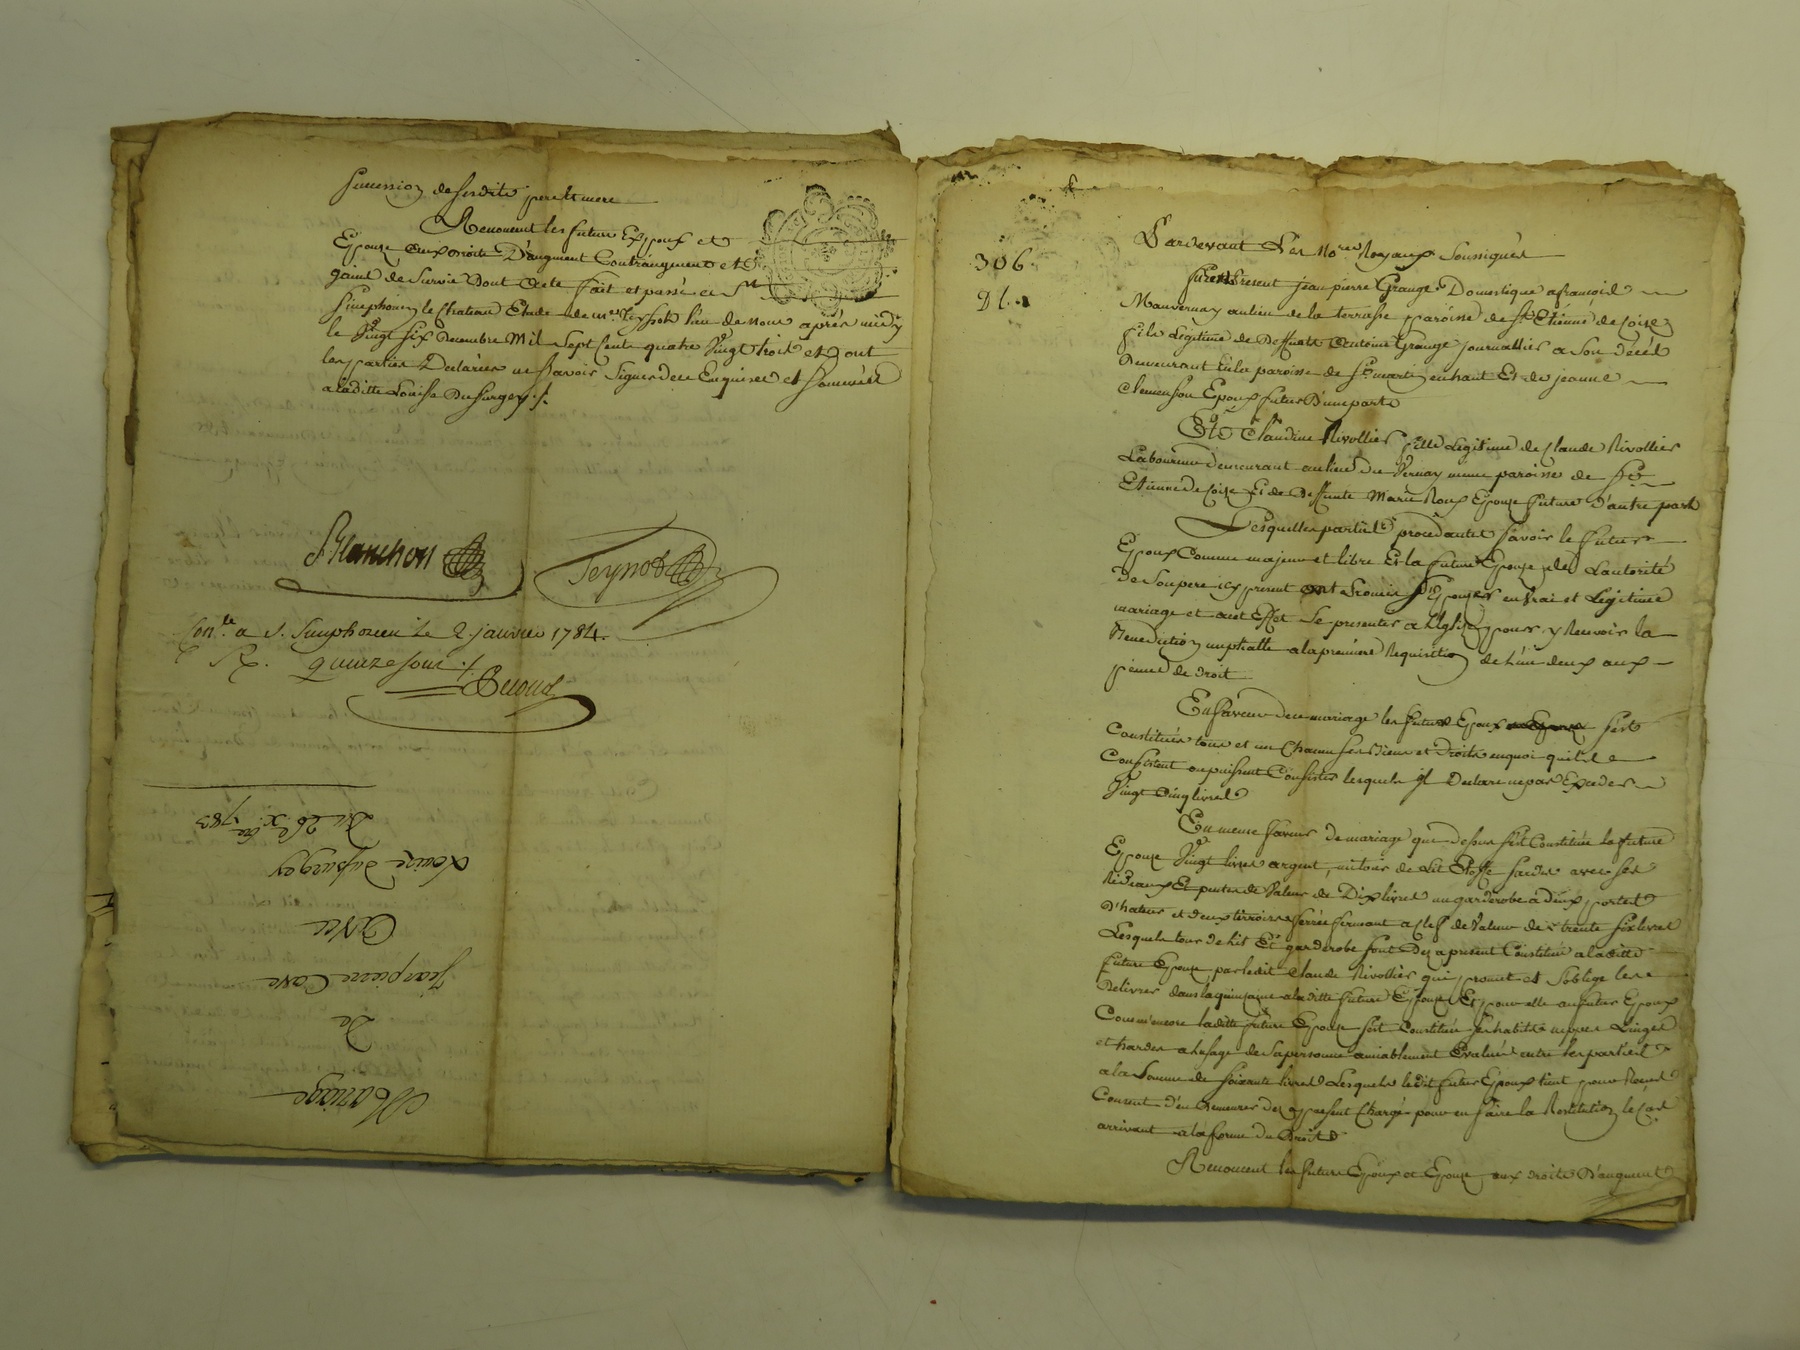 succession de sesdits pere et mere
Renoncent les futurs Epoux et
Epouze aux droits D'augment Contraugment et
gains de Survie Dont acte fait et passé a St
Simphorien le chateau Etude de me Teynot l'un de nous après midy
le Vingt six Decembre Mil Sept Cents quatre Vingt trois et ont
les parties Declarées ne Savoir Signer de ce Enquises et Sommées
a laditte Louise Dussurgey ./.
Blanchon Teynot
Conlé a S. Simphorien Le 2. janvier 1784.
R. quinze sous ./.
Benoud
Mariage
De
Jean pierre Cave
Avec
Louize Dussurgey
Du 26e Xbre 1783
306.
Pardevant Les Nores Royaux Soussignés
furent Present jean pierre Grange Domestique a françois
Mauvernay au lieu de la terrasse paroisse de St Etienne de Coise
fils Legitime de Deffunt Antoine Grange journallier a Son décès
Demeurant en la paroisse de St martin en haut Et de jeanne
Clemenson Epoux futur D'une part
Et Claudine Rivollier fille Legitime de Claude Rivollier
Laboureur demeurant au lieu du Vernay meme paroisse de St
Etienne de Coize Et de Deffunte Marie Roux Epouze future D'autre part
Lesquelles parties procedantes savoir le futur
Epoux Comme majeur et libre Et la future Epouze de L'autorité
de Son pere icy present ont Promis S'Epouzer en vrai et Legitime
mariage et a cet Effet Se presenter a l'Eglise pour y Recevoir la
Benediction nuptialle a la premiere Requisition de L'un deux aux
peines de droit
En faveur de ce mariage le futur Epoux s'est
Constitués tous et un Chacun ses Biens et Droits en quoi qu'ils
Consistent ou puissent Consister lesquels il Declare ne pas Exceder
Vingt Cinq livres
En meme faveur de mariage que dessus s'est Constituée la future
Epouze Vingt livres argent, un tour de Lit Etoffe sardis avec ses
Rideaux Et pentes de Valeur de Dix livres un garderobe a deux portes
D'hateur et deux tirroirs ferrée fermant a Clef de Valeur de trente six livres
Lesquels tour de lit Et garderobe sont Dez a present Constitué a laditte
future Epouze par ledit Claude Rivollier qui promet et S'oblige les
Delivrer dans la quinzaine a laditte future Epouze Et pour elle au futur Epoux
Comme encore laditte future Epouze s'est Constituée ses habits nippes Linges
et hardes a l'usage de Sa personne amiablement Evalués entre les parties
a la Somme de soixante livres Lesquels ledit futur Epoux tient pour Recus
Consent d'en Demeurer dez a present Chargé pour en faire la Restitution le Cas
arrivant a la forme du Droit
Renoncent les futurs Epoux et Epouze aux droits D'augment